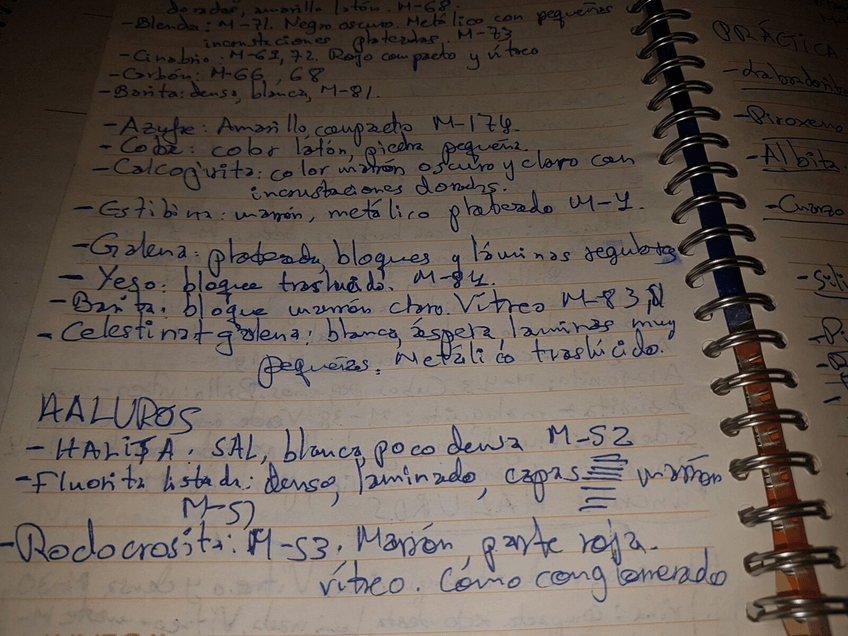 doradas, amarillo latón. M-68.
-Blenda: M-71. Negro oscuro. Metálico con pequeñas
incrustaciones plateadas. M-73
-Cinabrio: M-69, 72. Rojo compacto y vítreo
-Carbón: M-66, 68
-Barita: densa, blanca, M-81.
-Azufre: Amarillo, compacto M-174.
-Coba: color latón, piedra pequeña.
-Calcopirita: color marrón oscuro y claro con
incrustaciones doradas.
-Estibina: marrón, metálico plateado M-7.
-Galena: plateada, bloques y láminas regulares
- Yeso: bloque traslucido. M-84.
-Barita: bloque marrón claro. Vítreo M-83,
- Celestina+galena: blanca, áspera, laminas muy
pequeñas. Metálico traslúcido.
HALUROS
-HALITA. SAL, blanca, poco densa M-52
-Fluorita listada: denso, laminado, capas marrón
M-51
-Rodocrosita: M-53. Marrón, parte roja.
vítreo. Cómo conglomerado
PRÁCTICA
-Labradorita
-Piroxeno
-Albita
-Cuarzo